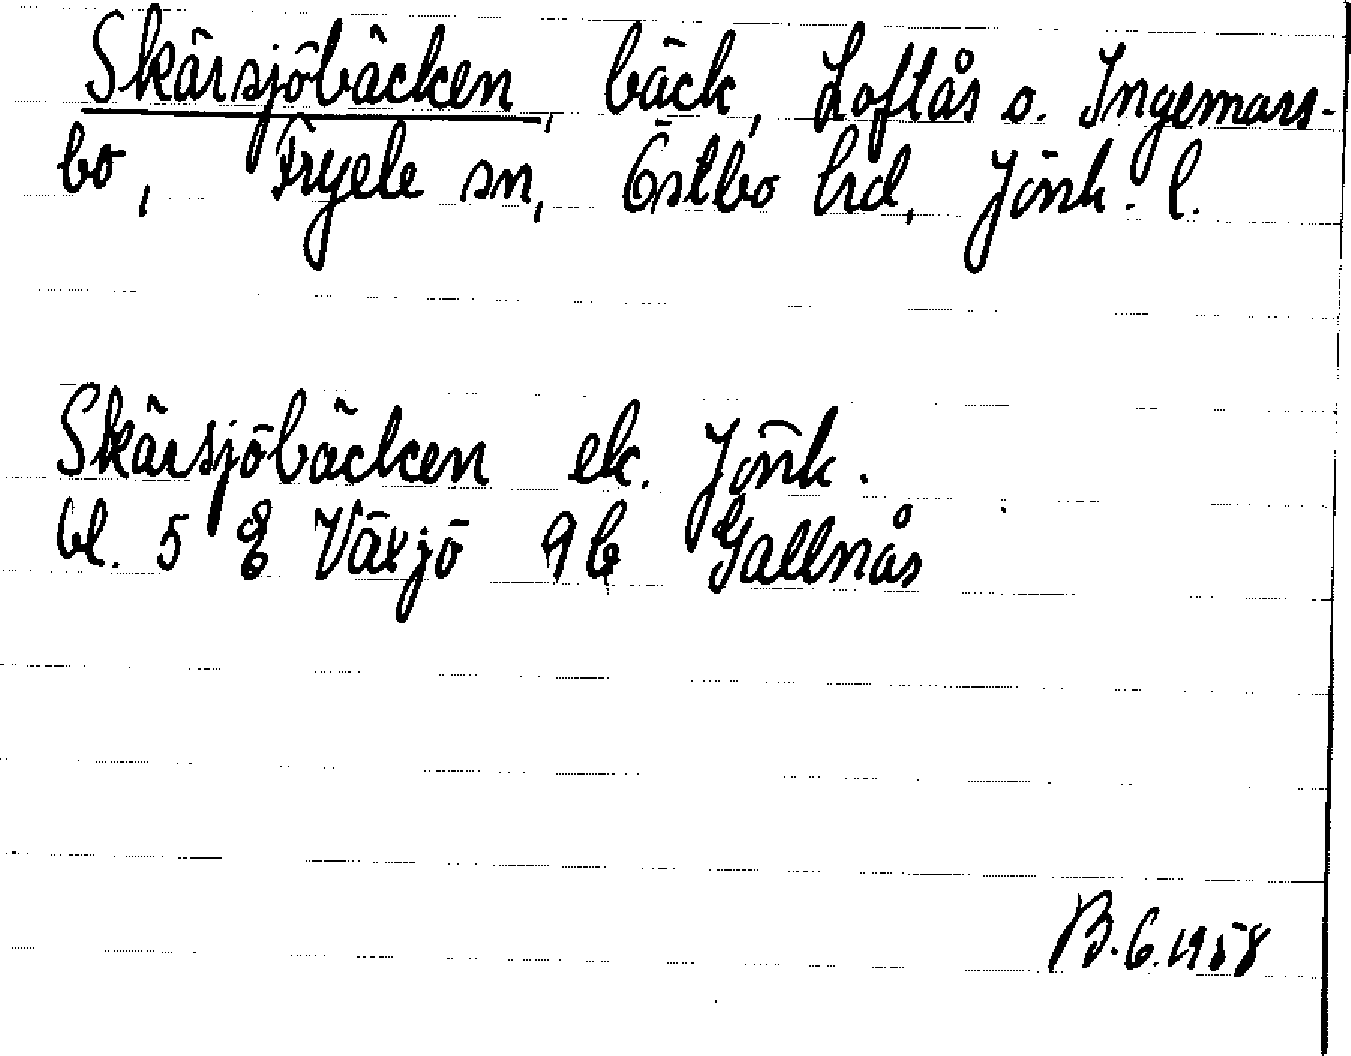 Skärsjöbäcken, bäck, Loftås o. Ingemars-
bo, Fryele sn, Östbo hd, Jönk. l.
Skärsjöbäcken ek. Jönk.
bl. 5 E Växjö 9b Gallnås
B.G.1958